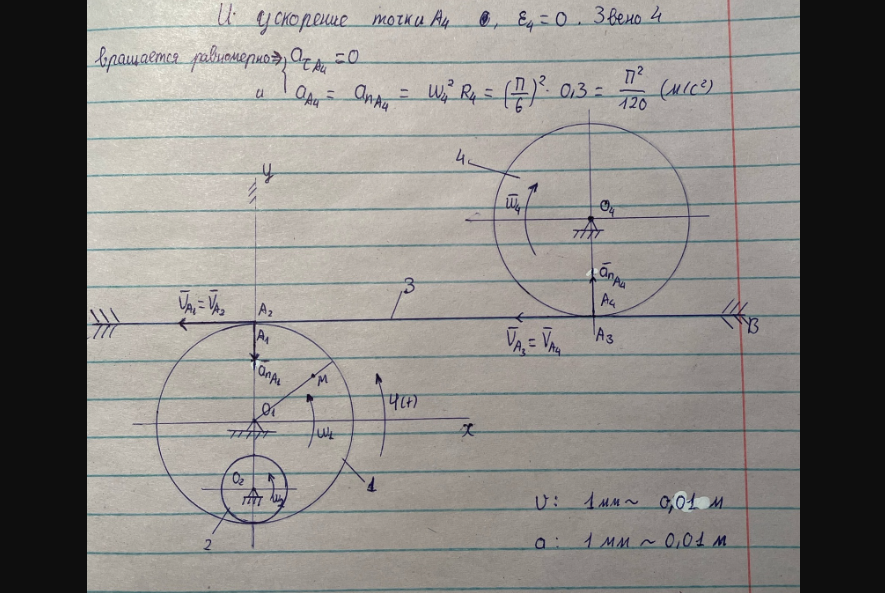 И ускорение точки A₄ , ε₄ = 0. Звено 4
вращается равномерно ⇒ { a_τA₄ = 0
и a_A₄ = a_nA₄ = ω₄² R₄ = (π/6)² · 0,3 = π²/120 (м/с²)
y
4
ω̄₄
O₄
ā_nA₄
A₄
3
V̄_A₁ = V̄_A₂
A₂
B
A₁
V̄_A₃ = V̄_A₄
A₃
ā_nA₁
M
φ(t)
O₁
ω₁
x
O₂
ω₂
1
2
υ: 1 мм ~ 0,01 м
a: 1 мм ~ 0,01 м